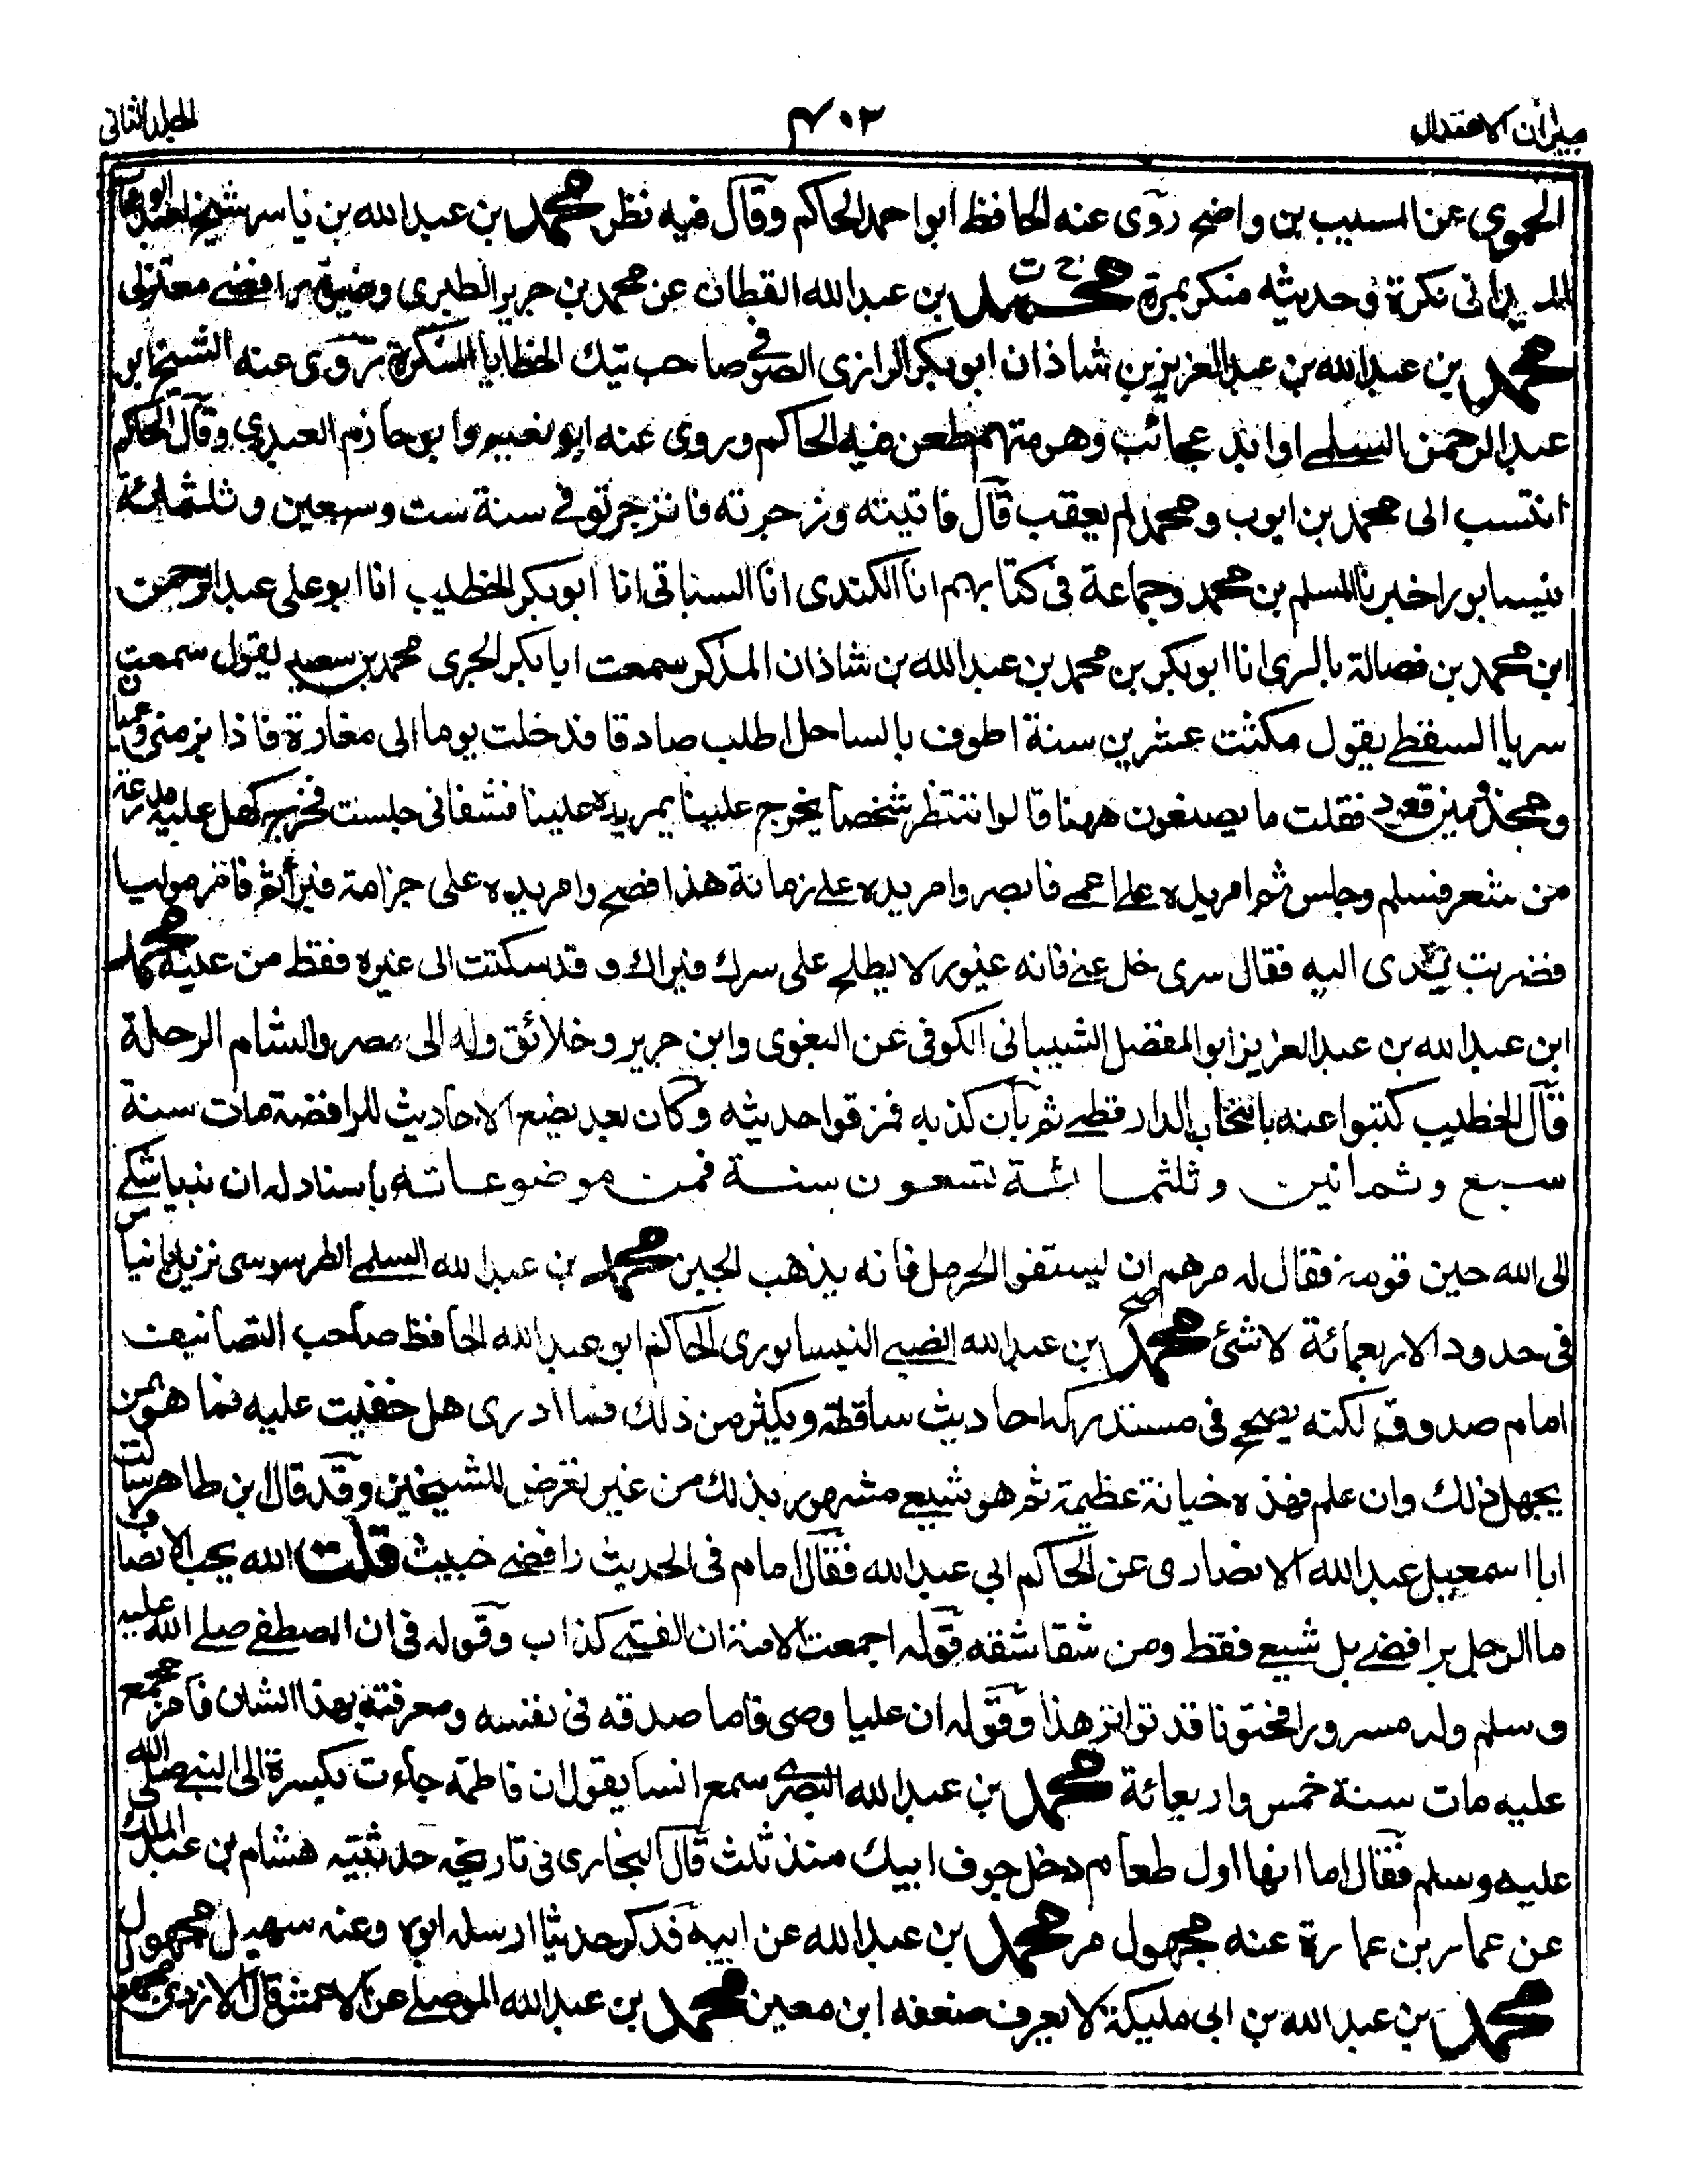 ميزان الاعتدال
٤٠٢
الجلد الثانى
الحموي عن المسيب بن واضح روى عنه الحافظ ابو احمد الحاكم وقال فيه نظر محمد بن عبد الله بن ياسر شيخ
نكرة وحديثه منكر بمرة محمد بن عبد الله القطان عن محمد بن جرير الطبرى رافضے معتزلى
محمد بن عبد الله بن عبد العزيز بن شاذان ابو بكر الرازى الصوفے صاحب تيك الحظايا المنكرة روى عنه الشيخ ابو
عبد الرحمن السلمے اوابد عجائب وهو متهم طعن فيه الحاكم وروى عنه ابو نعيم وابو حازم العبدوي وقال الحاكم
انتسب الى محمد بن ايوب ومحمد لم يعقب قال فاتيته وزجرته فانزجر توفى سنة ست وسبعين وثلثمائة
نيسابور اخبرنا المسلم بن محمد وجماعة فى كتابهم انا الكندى انا انا ابو بكر الخطيب انا ابو على عبد الرحمن
ابن محمد بن فضالة بالرى انا ابو بكر بن محمد بن عبد الله بن شاذان المذكر سمعت ابا بكر الحرى محمد بن سعيد يقول سمعت
سريا السقطے يقول مكثت عشرين سنة اطوف بالساحل اطلب صادقا فدخلت يوما الى مغارة فاذا بزمنى وعميان
ومجذومين قعود فقلت ما يصنعون ههنا قالوا ننتظر شخصا يخرج علينا يمر يده علينا فنشفانى جلست فخرج كهل عليه مدرعة
من شعر فسلم وجلس ثم امر يده على اعمے فابصر وامر يده علے زمانة هذا فصح وامر يده على جزامة فبرأ ثم قام موليا
فضربت يدى اليه فقال سرى خل عنے فانه غيور لا يطلع على سرك فيراك وقد سكنت الى غيره فقظ من عينه محمد
ابن عبد الله بن عبد العزيز ابو المفضل الشيبانى الكوفى عن البغوى وابن جرير وخلائق وله الى مصر والشام الرحلة
قال الخطيب كتبوا عنه بانتخاب الدارقطنے ثم بان كذبه فمزقوا حديثه وكان بعد يضع الاحاديث للرافضة مات سنة
سبع وثمانين وثلثمائة تسعون سنة فمن موضوعاته باسناد له ان نبيا شكے
الى الله حين قومه فقال له مرهم ان يستفوا الحرمل فانه يذهب الجبن محمد بن عبد الله السلمے الطرسوسى نزيل بانياس
فى حدود الاربعمائة لا شئ صح محمد بن عبد الله الضبے النيسابورى الحاكم ابو عبد الله الحافظ صاحب التصانيف
امام صدوق لكنه يصحح فى مستدركه احاديث ساقطة ويكثر من ذلك فما ادرى هل خفيت عليه فما هو من
يجهل ذلك وان علم فهذه خيانة عظيمة ثم هو شيعے مشهور بذلك من غير تعرض للشيخين وقد قال ابن طاهر سالت
ابا اسمعيل عبد الله الانصارى عن الحاكم ابي عبد الله فقال امام فى الحديث رافضے خبيث قلت الله يحب الانصاف
ما الرجل برافضے بل شيعے فقط ومن شقاشقه قوله اجمعت الامة ان القتبے كذاب وقوله فى ان المصطفے صلے الله عليه
وسلم ولد مسرورا مختونا قد تواتر هذا وقوله ان عليا وصى فاما صدقه فى نفسه ومعرفته بهذا الشان فامر مجمع
عليه مات سنة خمس واربعمائة محمد بن عبد الله البصرے سمع انسا يقول ان فاطمة جاءت بكسرة الى النبے صلى الله
عليه وسلم فقال اما انها اول طعام دخل جوف ابيك منذ ثلث قال البخارى فى تاريخه حدثنيه هشام بن عبد الملك
عن عمار بن عمارة عنه مجهول مر محمد بن عبد الله عن ابيه فذكر حديثا ارسله ابوه وعنه سهيل مجهول
محمد بن عبد الله بن ابى مليكة لا يعرف ضعفه ابن معين محمد بن عبد الله الموصلے عن الاعمش قال الازدى